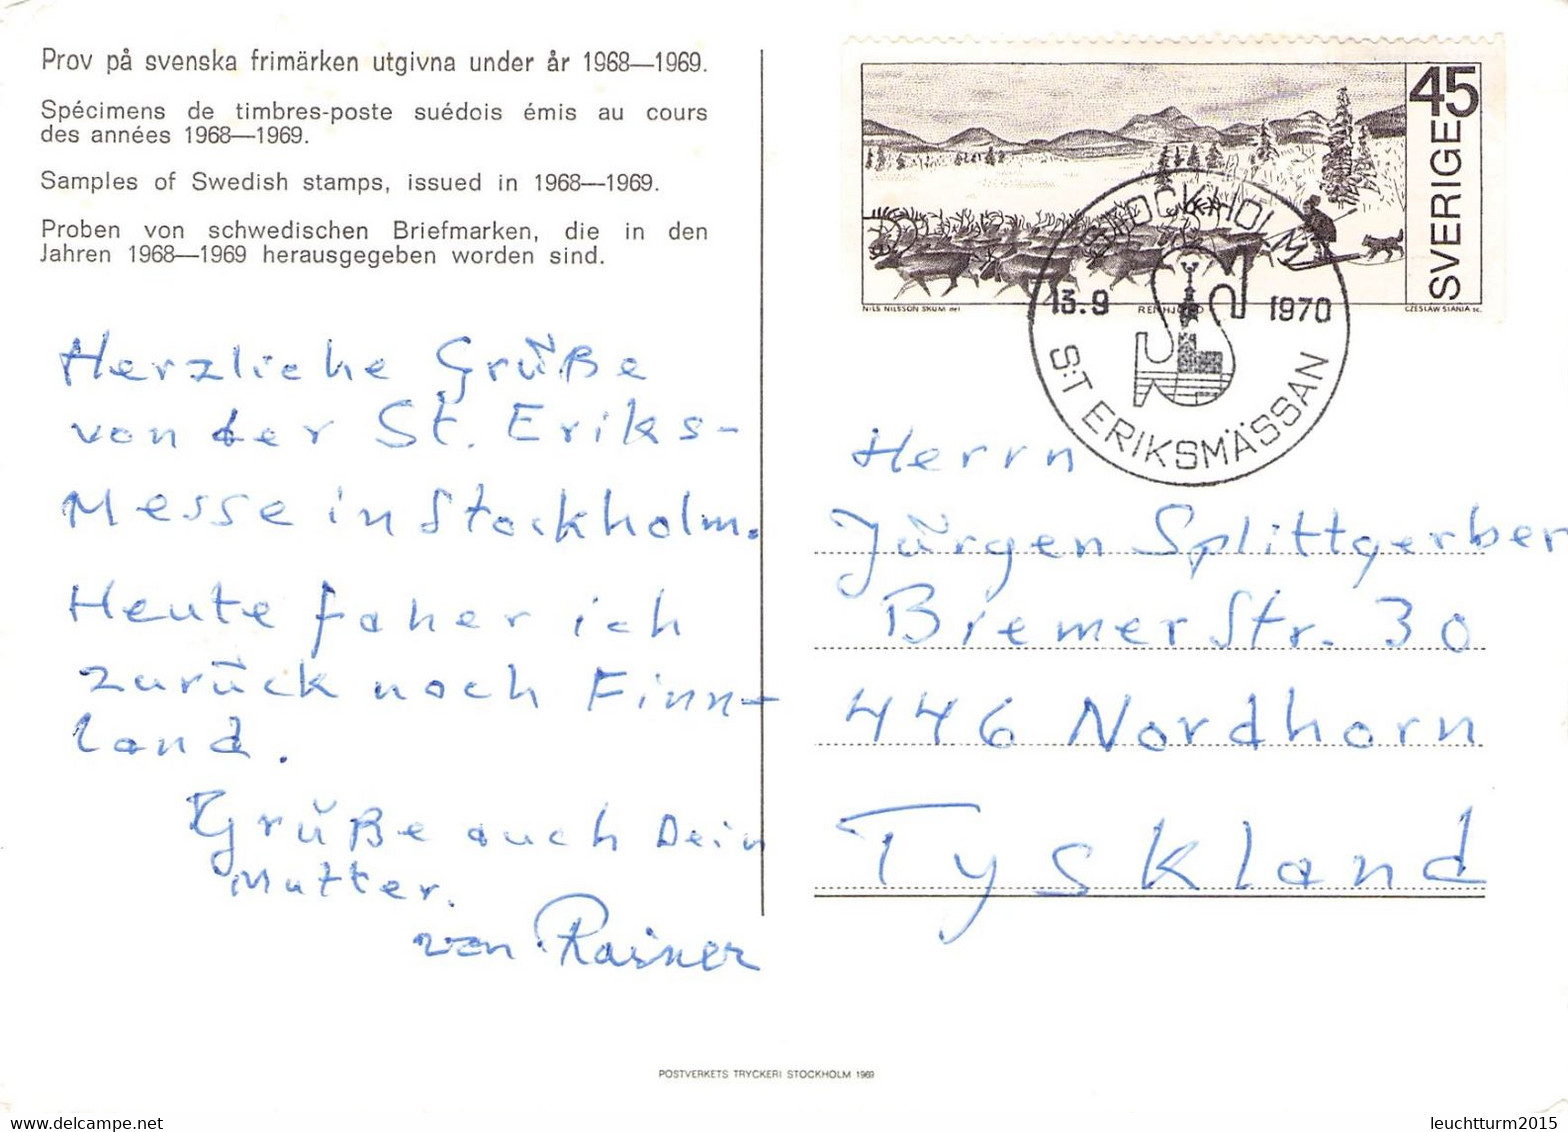 Prov på svenska frimärken utgivna under år 1968—1969.
Spécimens de timbres-poste suédois émis au cours
des années 1968—1969.
Samples of Swedish stamps, issued in 1968—1969.
Proben von schwedischen Briefmarken, die in den
Jahren 1968—1969 herausgegeben worden sind.
Herzliche Grüße
von der St. Eriks-
Messe in Stockholm.
Heute faher ich
zurück noch Finn-
land.
Grüße auch Dein
Mutter.
von Rainer
45
SVERIGE
NILS NILSSON SKUM del
RENHJORD
CZESLAW SLANIA sc.
STOCKHOLM
13.9 1970
S:T ERIKSMÄSSAN
Herrn
Jürgen Splittgerber
Bremer Str. 30
446 Nordhorn
Tyskland
POSTVERKETS TRYCKERI STOCKHOLM 1969
leuchtturm2015